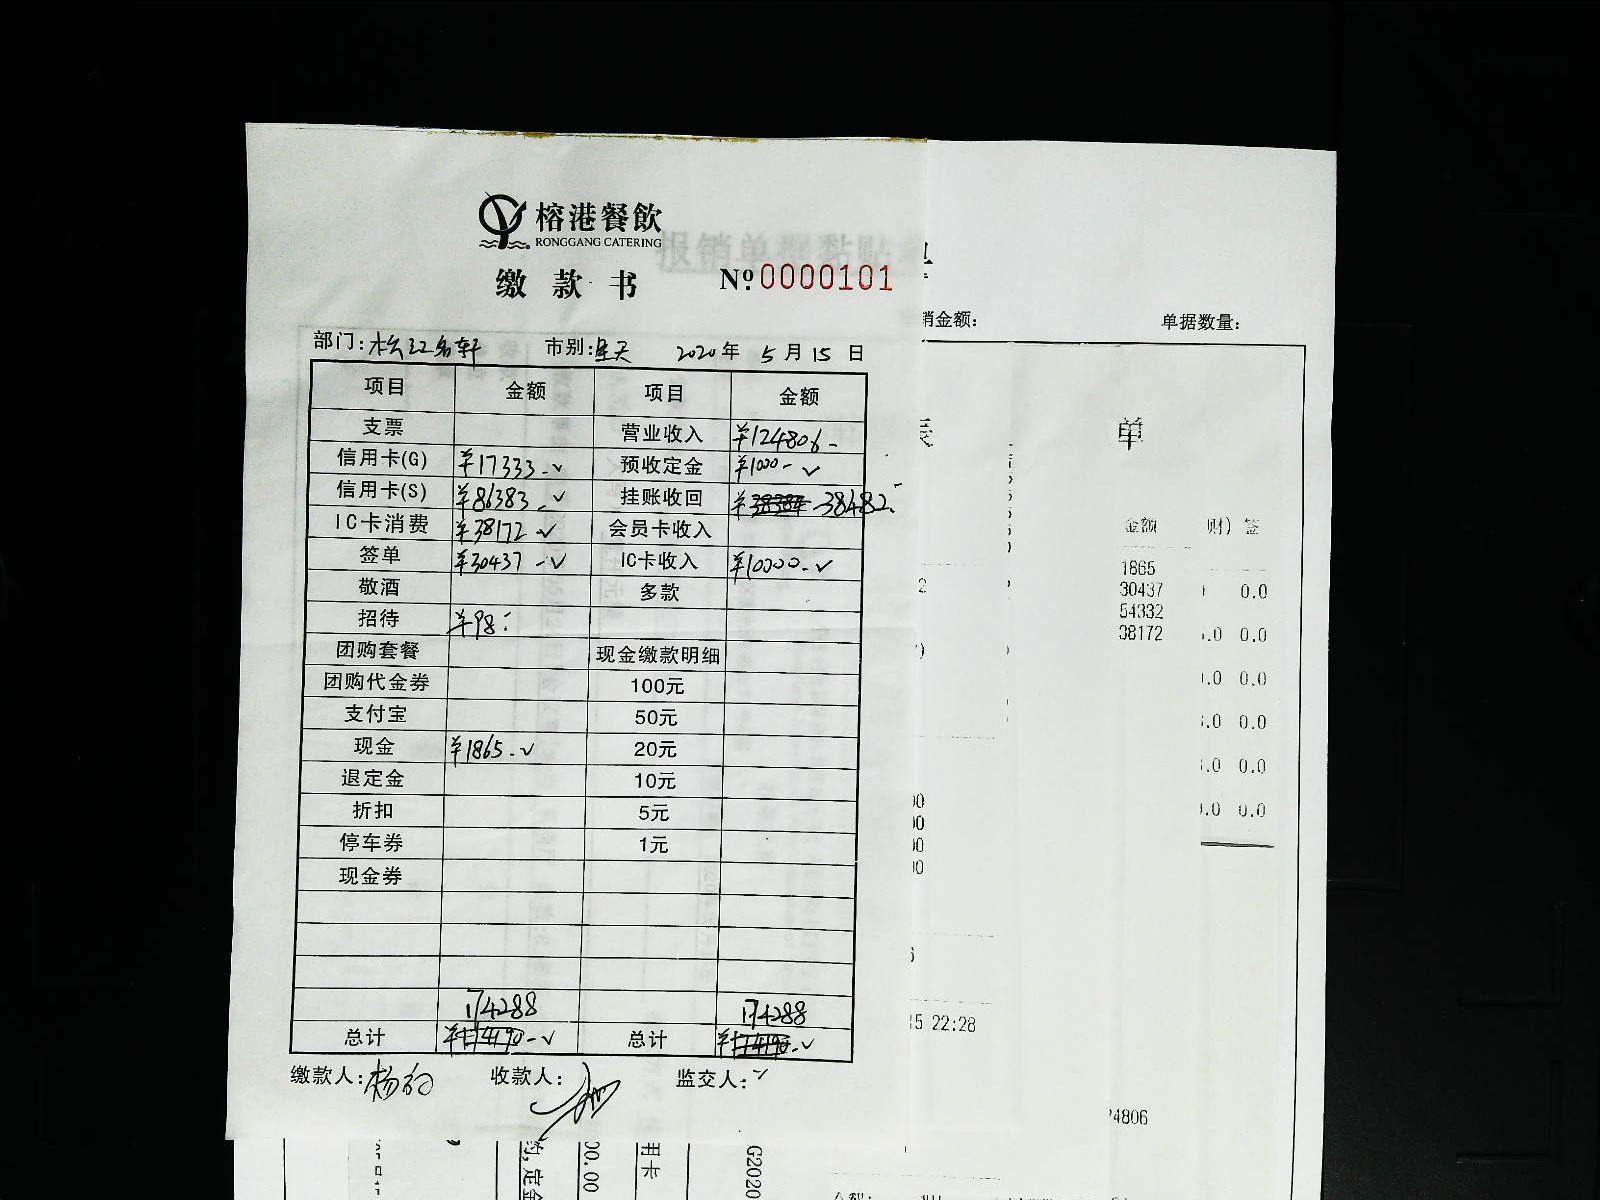 榕港餐飲
RONGGANG CATERING
缴款书 Nº 0000101
部门:松江名轩 市别:全天 2020年5月15日
项目 金额 项目 金额
支票 营业收入 ¥124806-
信用卡(G) ¥17333-✓ 预收定金 ¥1000-✓
信用卡(S) ¥86383-✓ 挂账收回 ¥38482-
IC卡消费 ¥38172✓ 会员卡收入
签单 ¥30437-✓ IC卡收入 ¥10000-✓
敬酒 多款
招待 ¥98-
团购套餐 现金缴款明细
团购代金券 100元
支付宝 50元
现金 ¥1865-✓ 20元
退定金 10元
折扣 5元
停车券 1元
现金券
174288 174288
总计 总计
缴款人: 收款人: 监交人:
销金额: 单据数量:
单
金额 财) 签
1865
30437 0.0
54332
38172 .0 0.0
.0 0.0
.0 0.0
.0 0.0
.0 0.0
15 22:28
24806
G2020
用卡
00.00